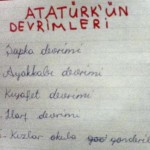 ATATÜRK'ÜN
DEVRİMLERİ
Şapka devrimi
Ayakkabı devrimi
Kıyafet devrimi
devrimi
- Kızlar okula gönderil